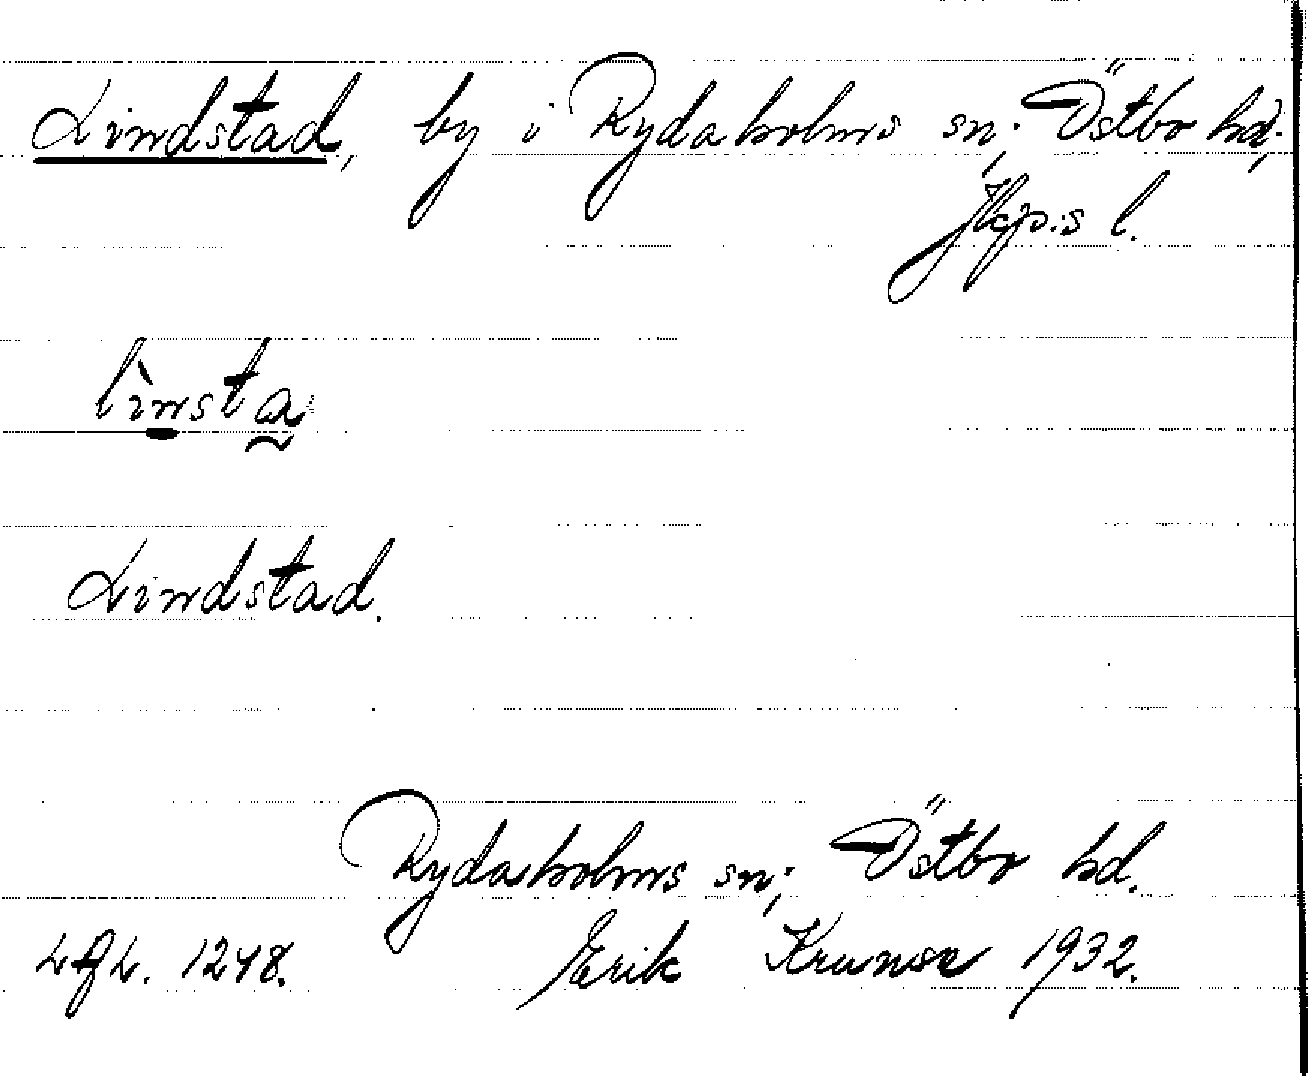 Lindstad, by i Rydaholms sn; Östbo hd;
Jkp:s l.
lìnsta
Lindstad.
Rydaholms sn; Östbo hd.
LfL. 1248. Erik Kranse 1932.